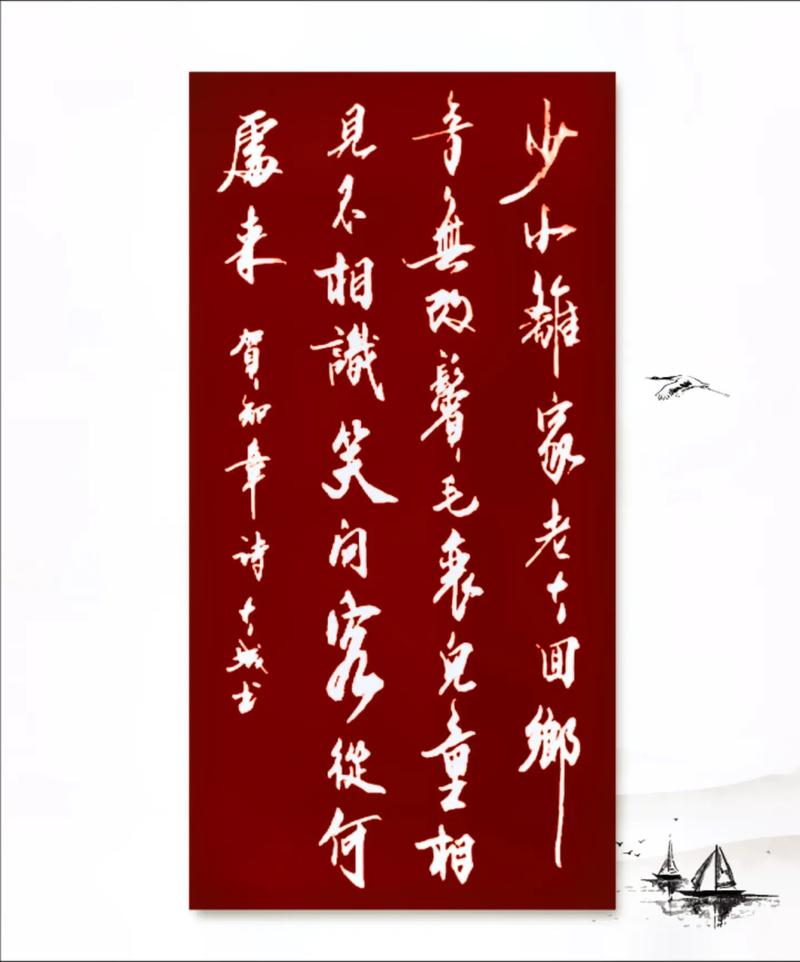 少小離家老大回鄉
音無改鬢毛衰兒童相
見不相識笑问客從何
處来 賀知章诗 大城书